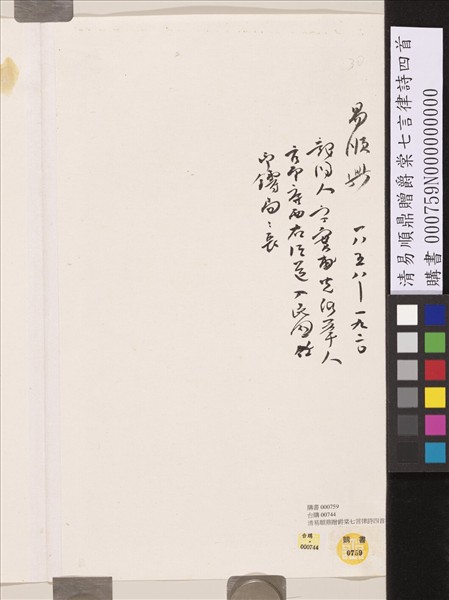 清易順鼎贈爵棠七言律詩四首
購書 000759N000000000
易順鼎 一八五八—一九二〇
龍陽人字實甫光緒舉人
官廣西右江道入民國任
印鑄局々長
購書 000759
台購 00744
清易順鼎贈爵棠七言律詩四首
台購
000744
購書
0759